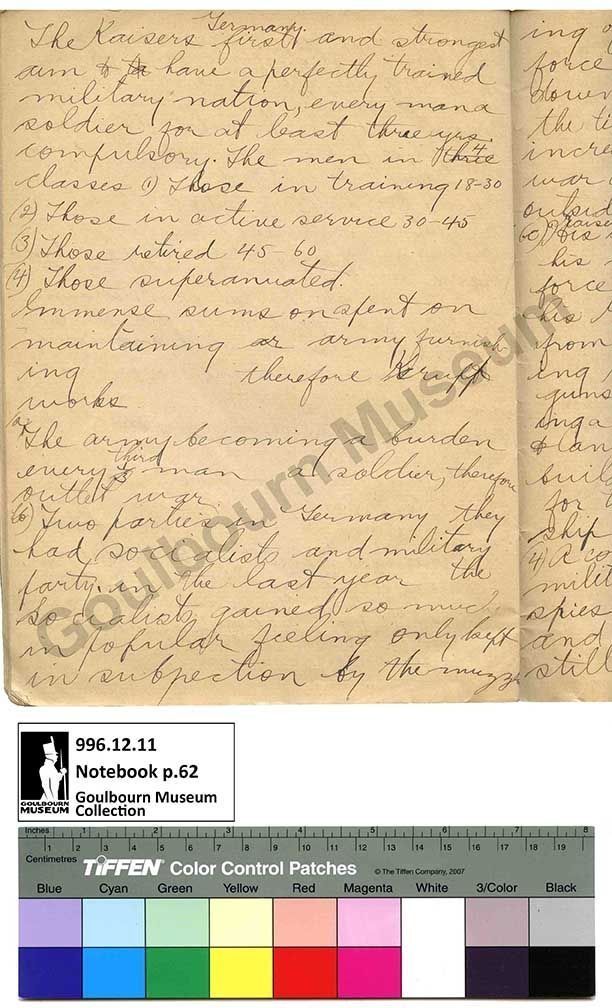 Germany.
The Kaisers first and strongest
aim to have a perfectly trained
military nation, every man a
soldier for at least three yrs.
compulsory. The men in three 4
classes (1) Those in training 18-30
(2) Those in active service 30-45
(3) Those retired 45-60
(4) Those superanuated.
Immense sums on spent on
maintaining or army furnish
ing therefore Krupp
works
(a) The army becoming a burden
every third man a soldier, therefore
outlet war
(b) Two parties in Germany they
had socialists and military
party. in the last year the
socialists gained so much
in popular feeling only kept
in subpection by the muzz
ing
force
down
the ti
incre
war
outsid
(c) His
his
force
his
from
ing
guns
ing a
& lan
build
for
ship
4) A co
milit
spies
and
still
Goulbourn Museum
GOULBOURN
MUSEUM
996.12.11
Notebook p.62
Goulbourn Museum
Collection
Inches 1 2 3 4 5 6 7 8
Centimetres 1 2 3 4 5 6 7 8 9 10 11 12 13 14 15 16 17 18 19
TIFFEN Color Control Patches © The Tiffen Company, 2007
Blue Cyan Green Yellow Red Magenta White 3/Color Black